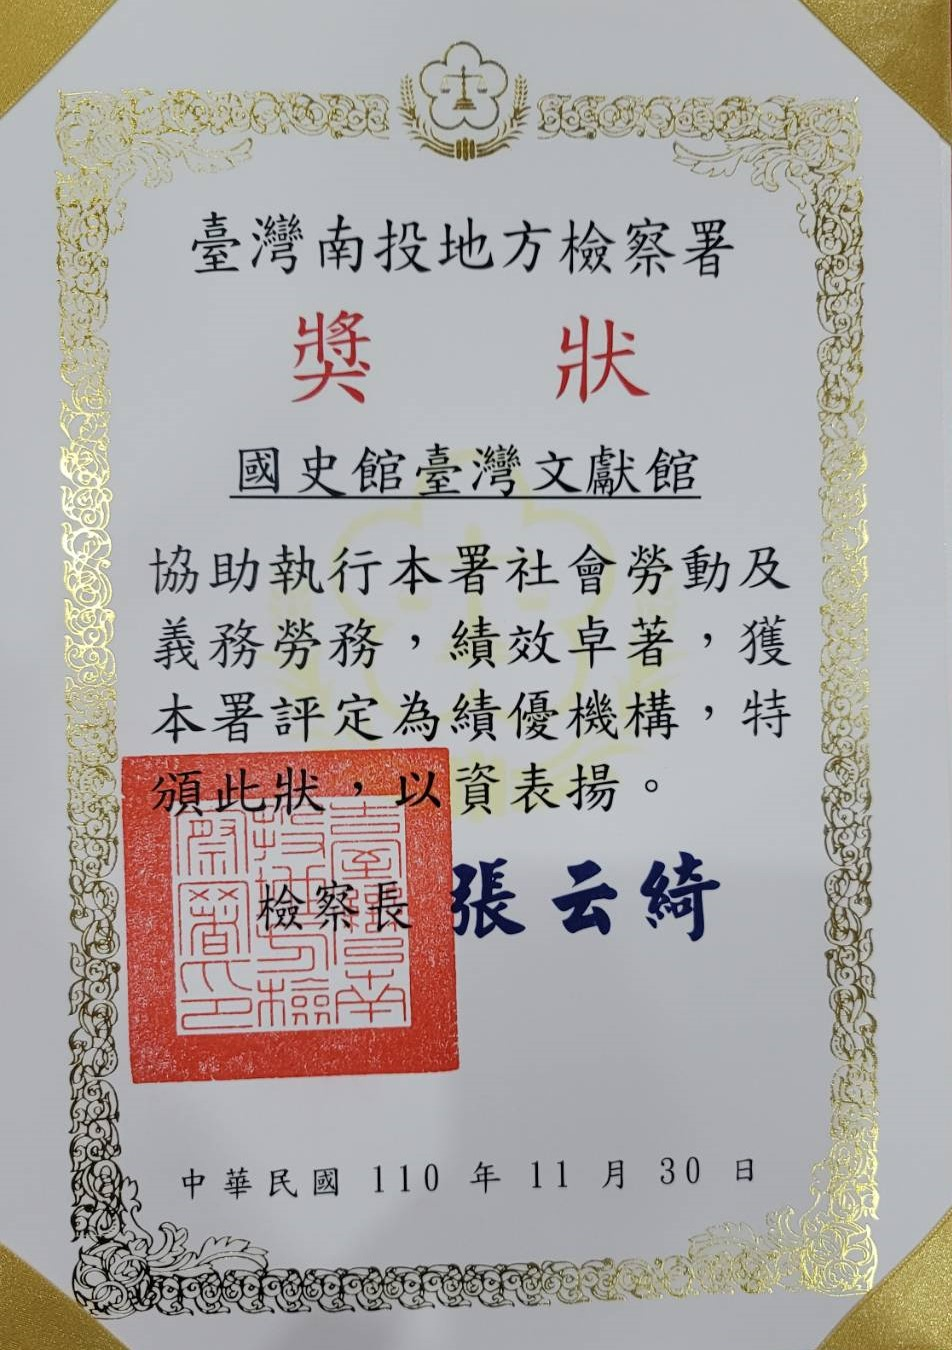 臺灣南投地方檢察署
獎狀
國史館臺灣文獻館
協助執行本署社會勞動及
義務勞務，績效卓著，獲
本署評定為績優機構，特
頒此狀，以資表揚。
檢察長 張云綺
臺灣南投地方檢察署印
中華民國 110 年 11 月 30 日